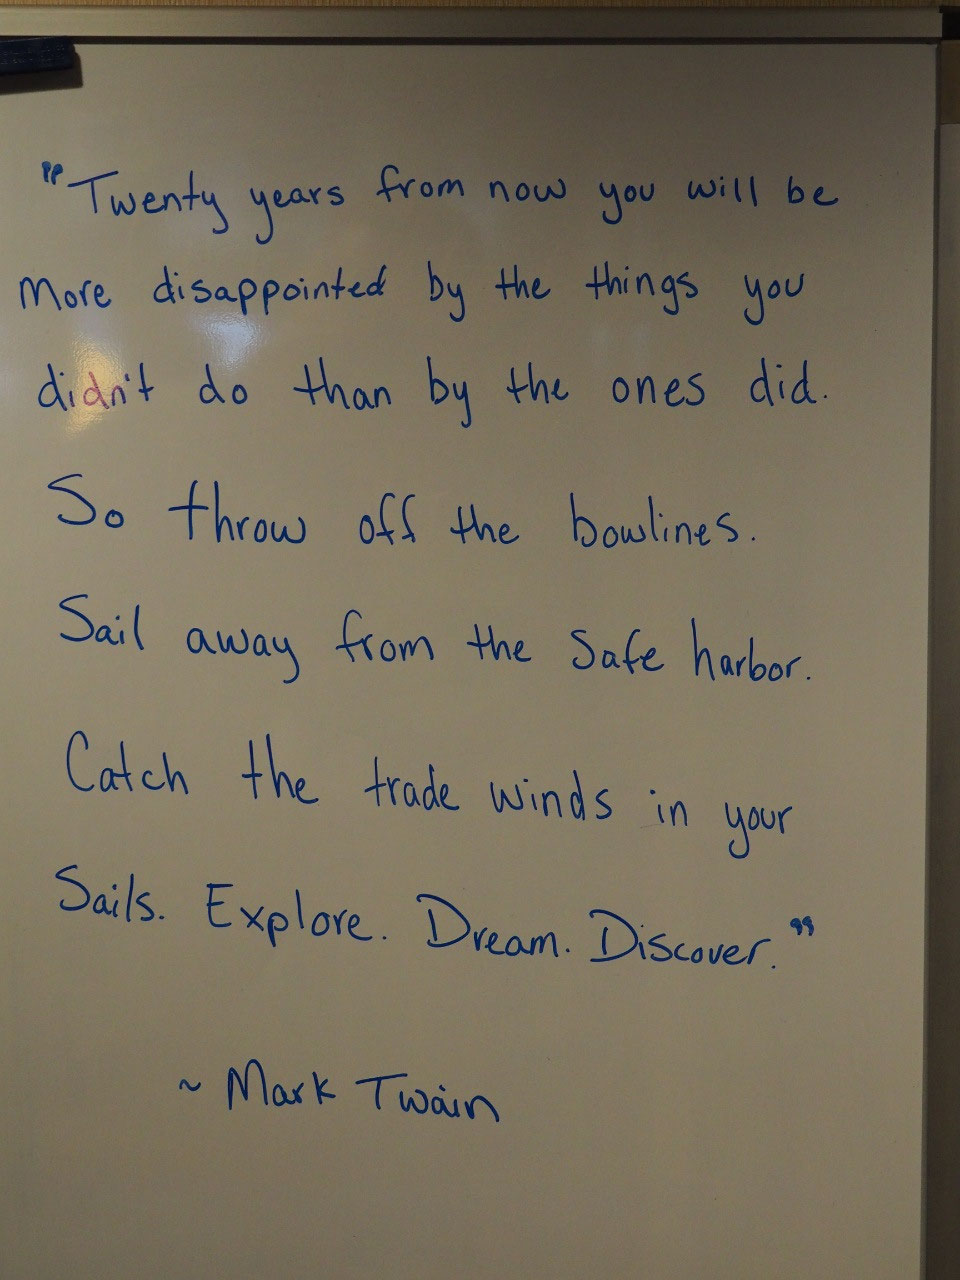 "Twenty years from now you will be
More disappointed by the things you
didn't do than by the ones did.
So throw off the bowlines.
Sail away from the Safe harbor.
Catch the trade winds in your
Sails. Explore. Dream. Discover."
~ Mark Twain